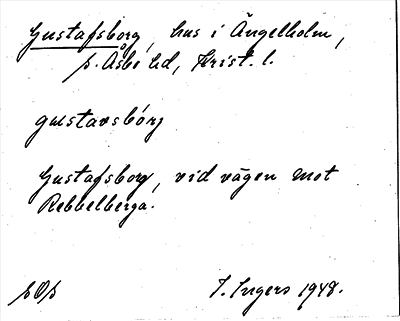 Gustafsborg, hus i Ängelholm,
s. Åsbo hd, Krist. l.
gustavsbórj
Gustafsborg, vid vägen mot
Rebbelberga.
I. Ingers 1948.